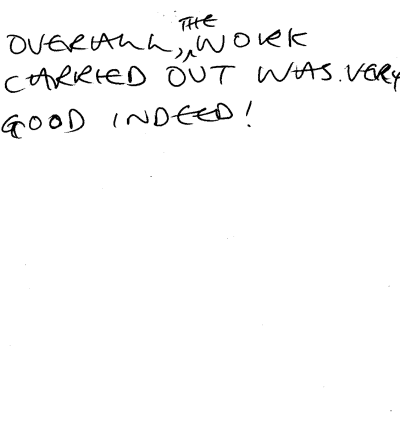 OVERALL, THE WORK
CARRIED OUT WAS VERY
GOOD INDEED!